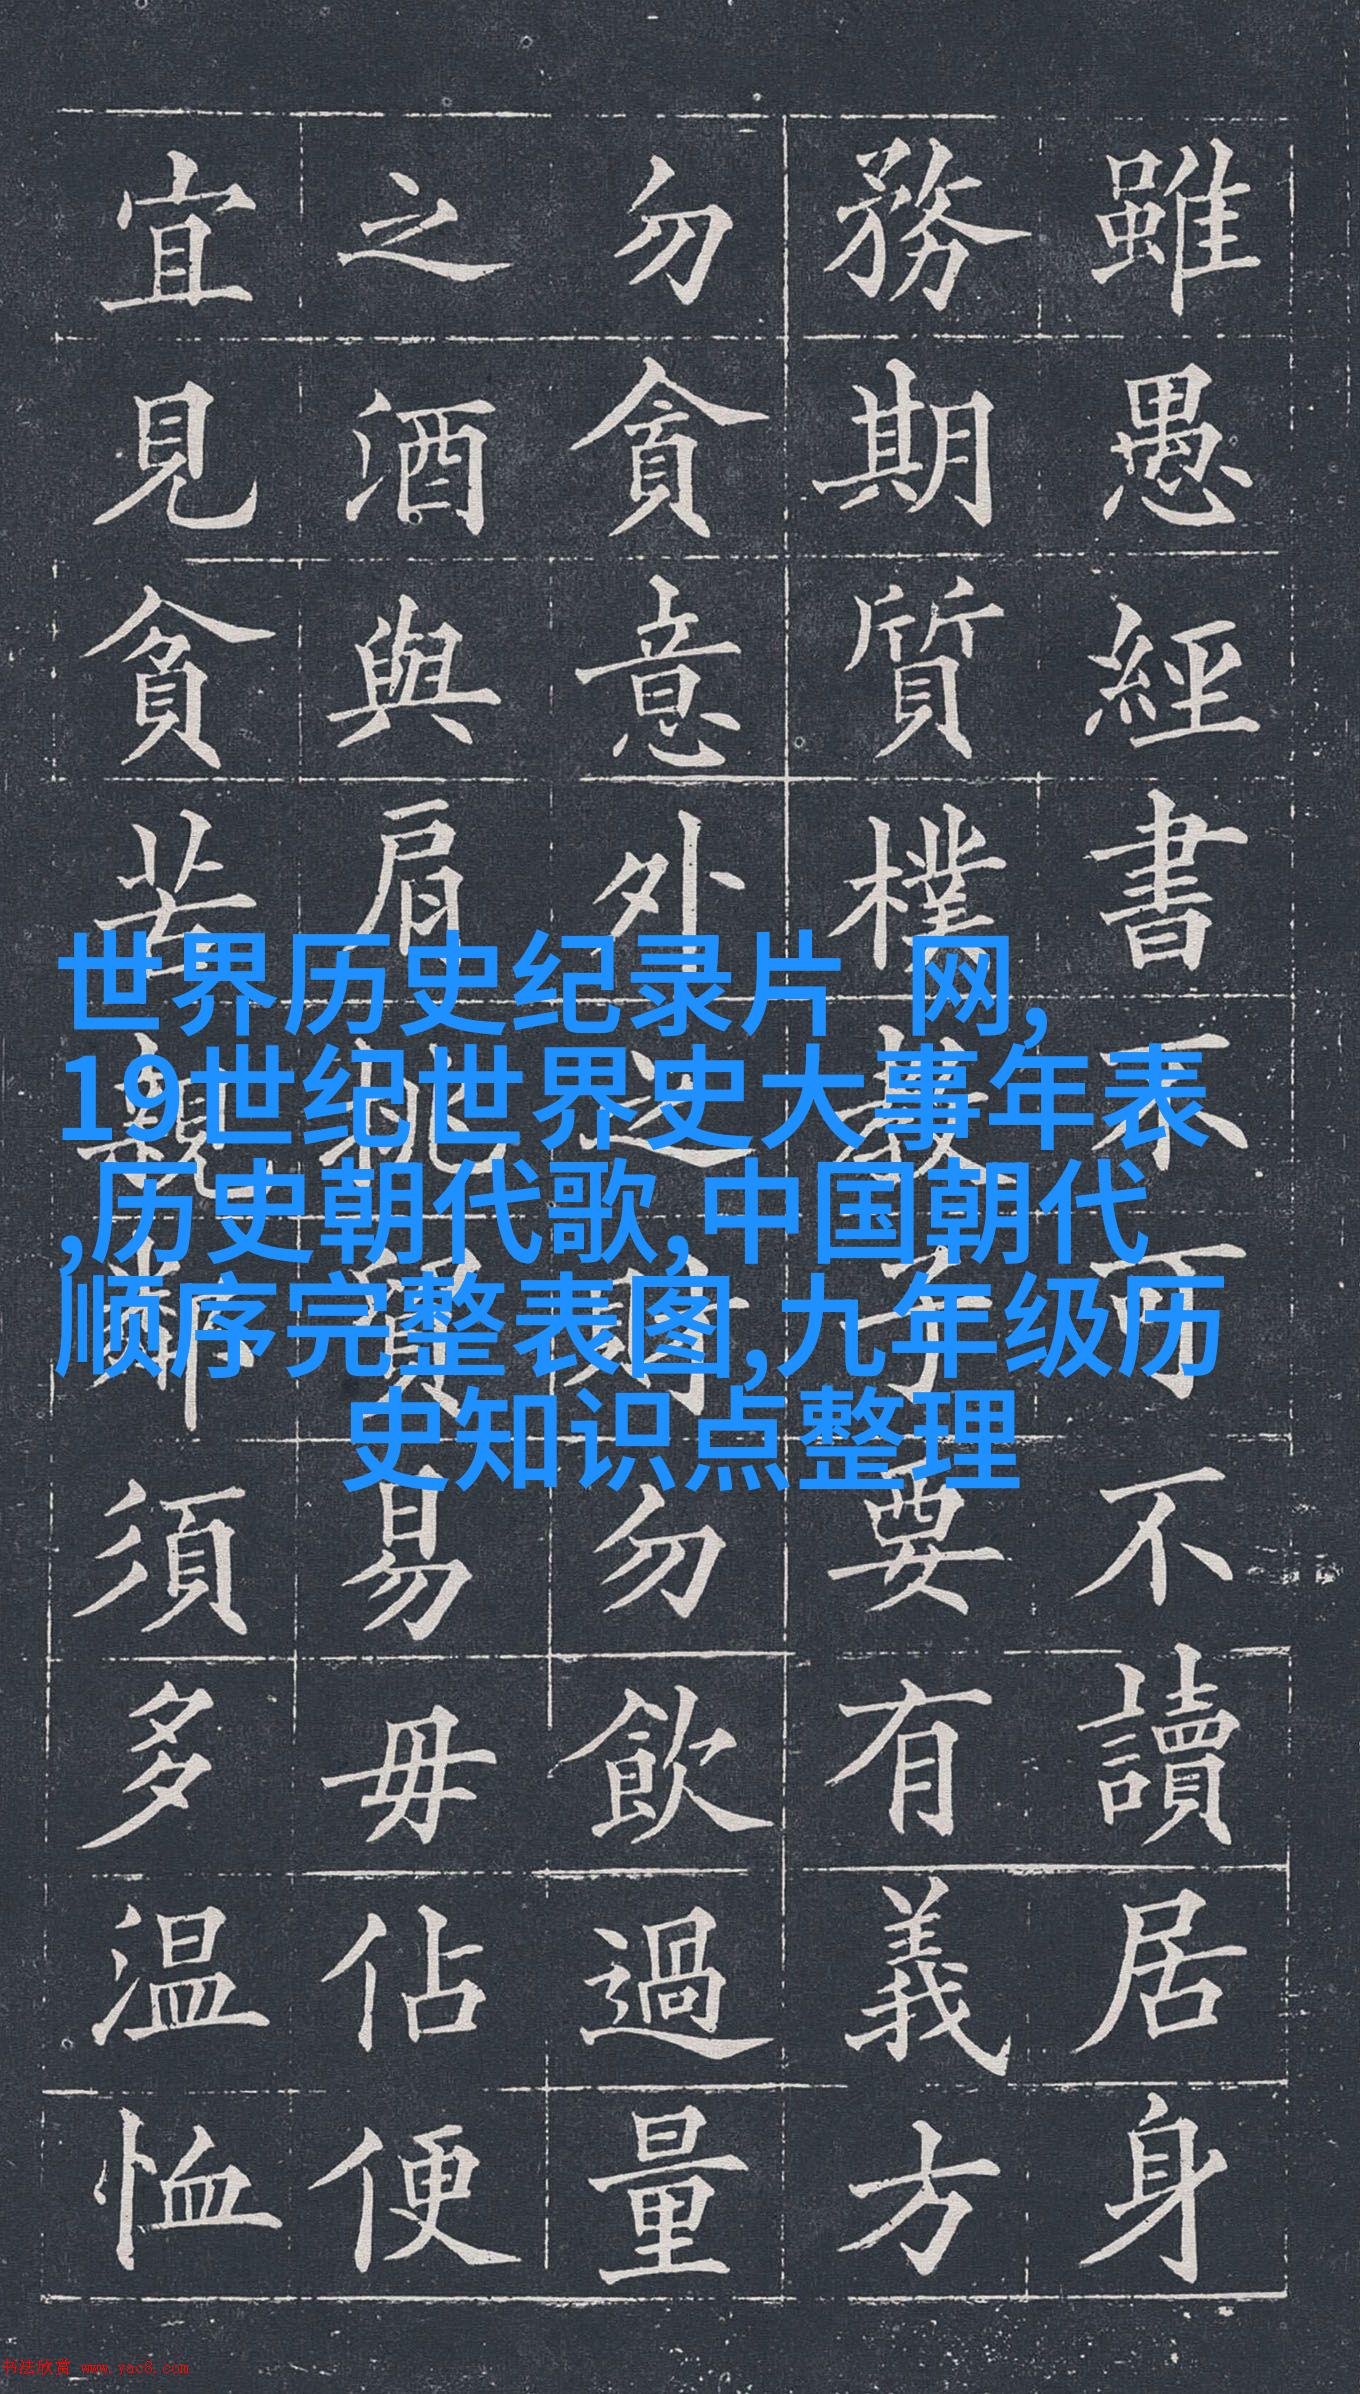 雖愚經書不可不讀居身
務期質樸教子要有義方
勿貪意外之財勿飲過量
之酒與肩挑貿易毋佔便
宜見貧苦親鄰須多温恤
世界历史纪录片 网,
19世纪世界史大事年表
,历史朝代歌,中国朝代
顺序完整表图,九年级历
史知识点整理
书法欣赏 www.yac8.com